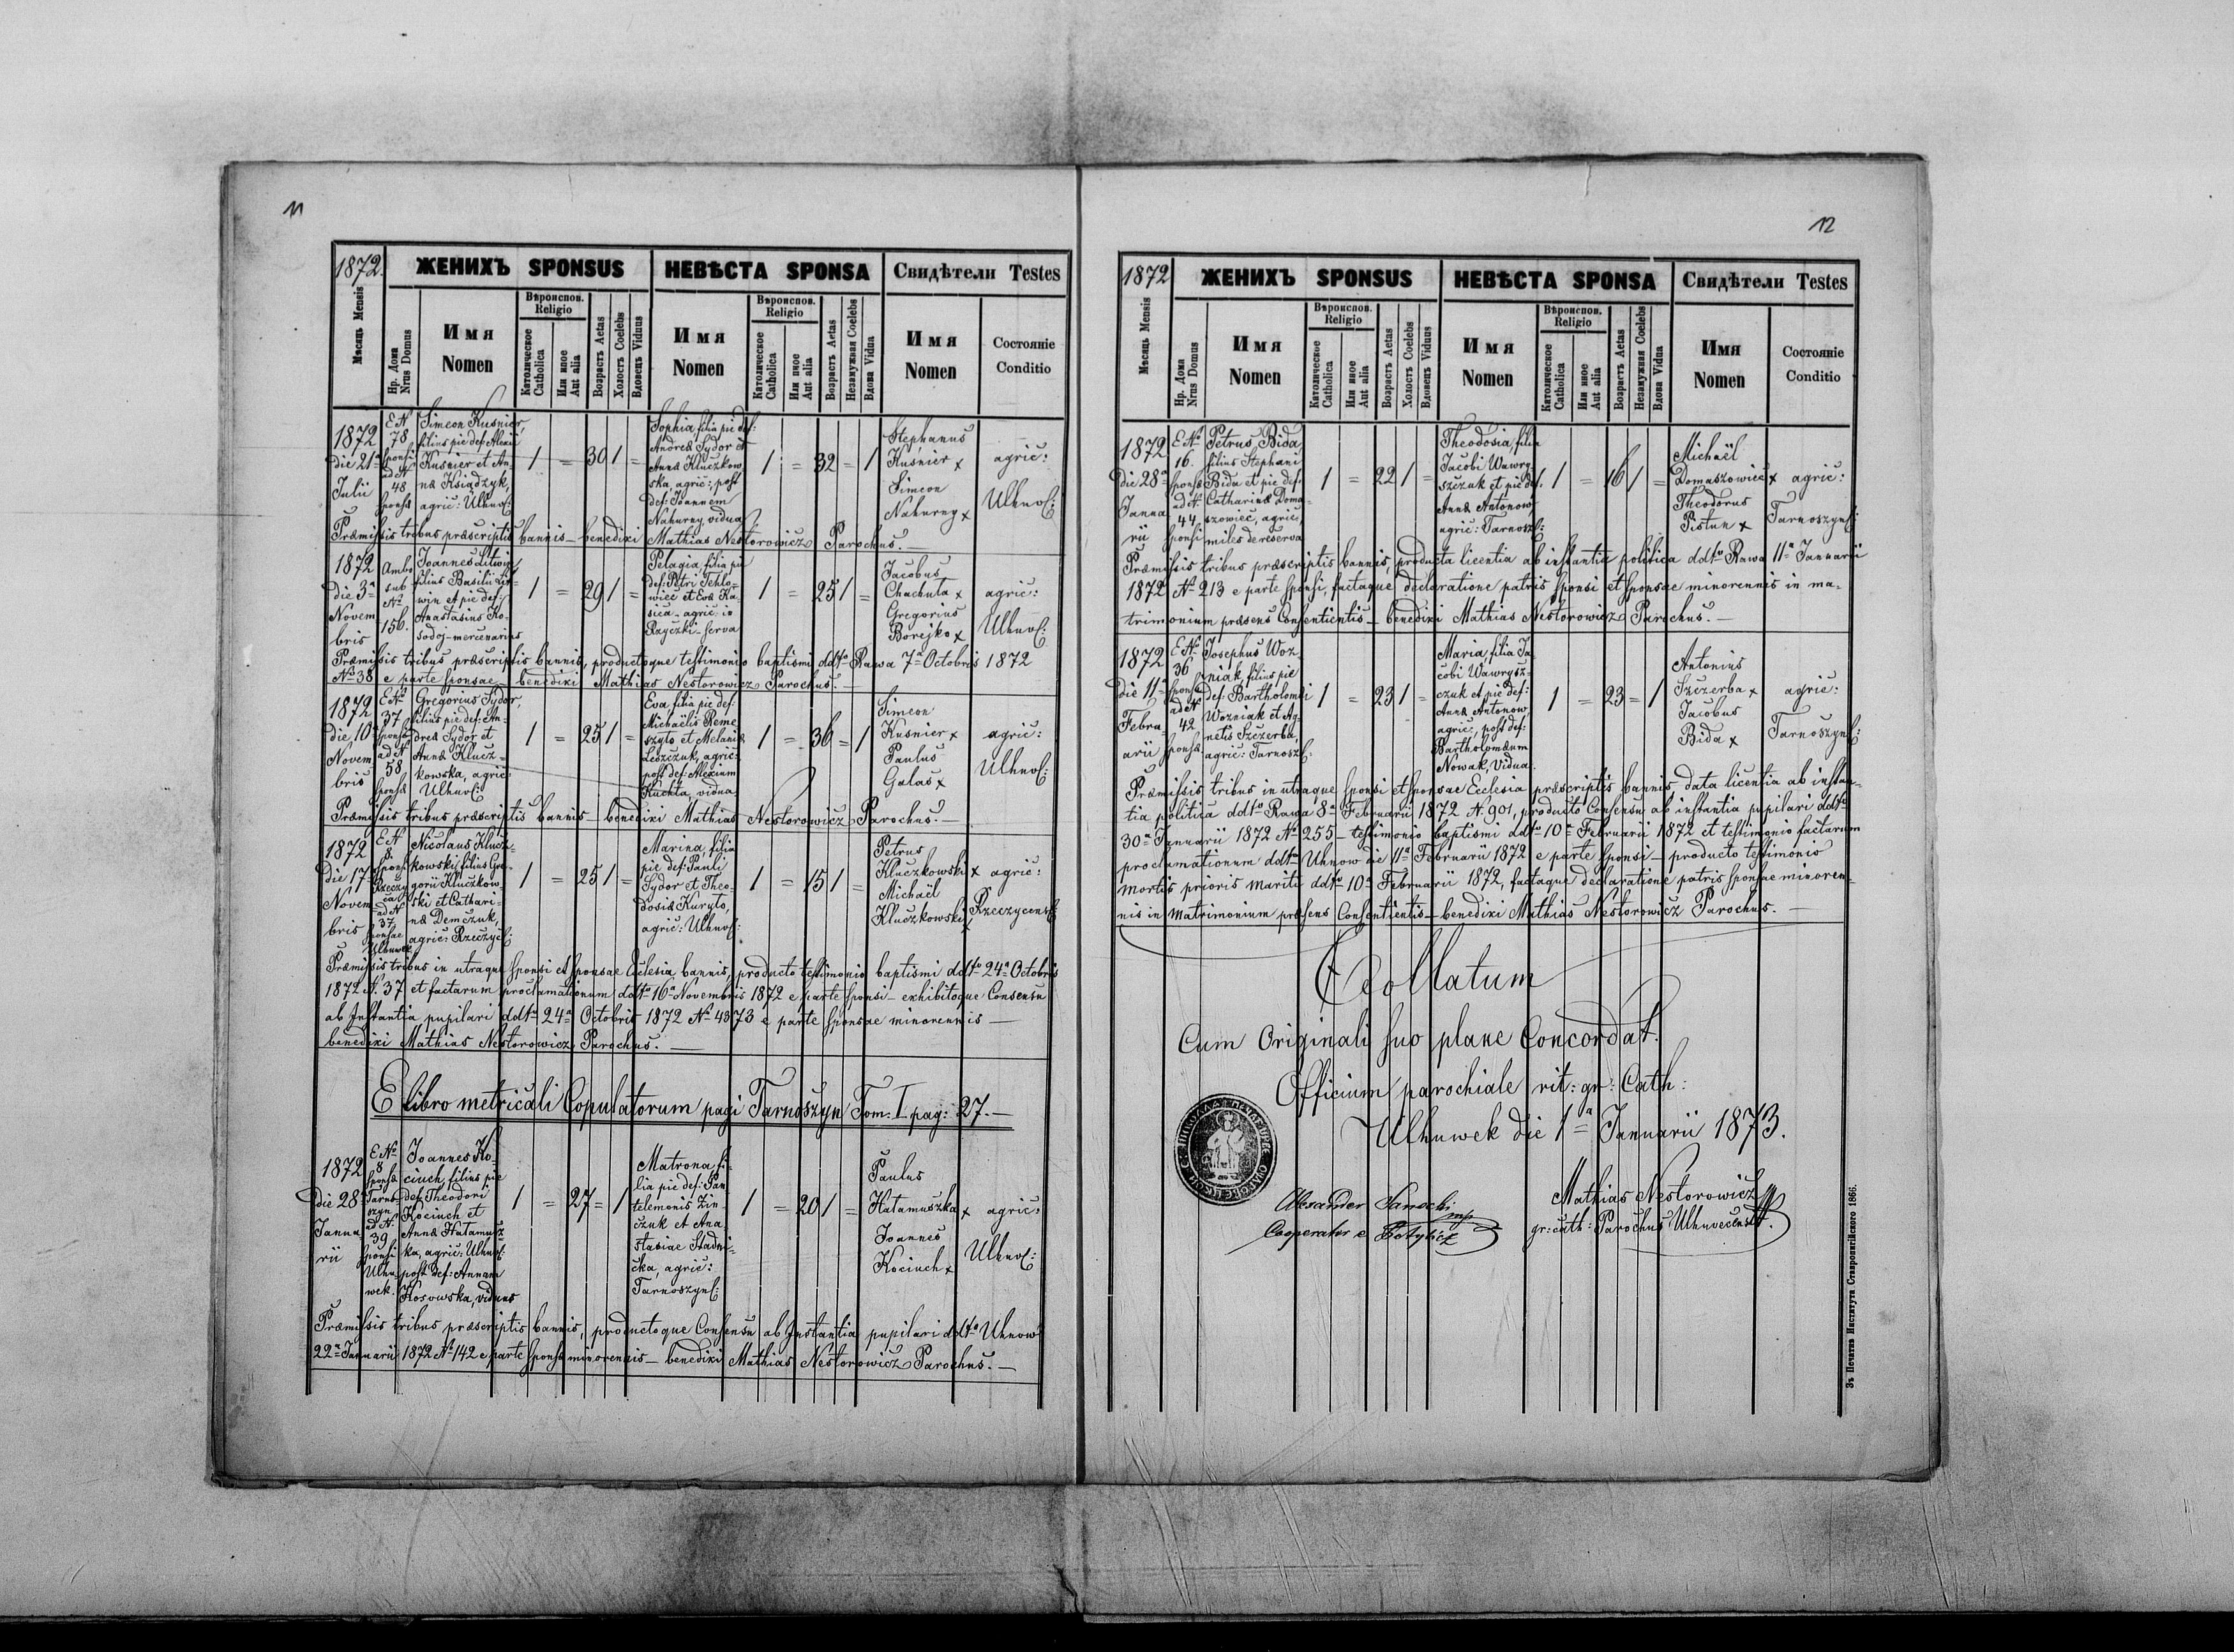 11
1872.
ЖЕНИХЪ SPONSUS
НЕВѢСТА SPONSA
Свидѣтели Testes
Мѣсяць Mensis
Нр. Дома
Nrus Domus
Имя
Nomen
Вѣроиспов.
Religio
Католическое
Catholica
Или иное
Aut alia
Возрастъ Aetas
Холостъ Coelebs
Вдовецъ Viduus
Имя
Nomen
Вѣроиспов.
Religio
Католическое
Catholica
Или иное
Aut alia
Возрастъ Aetas
Незамужная Coelebs
Вдова Vidua
Имя
Nomen
Состояніе
Conditio
1872
die 21ª
Julii
E N
78
sponsi
ad N
48
sponsæ
Simeon Kusnier,
filius pie def: Alexii
Kusnier et An-
næ Książyk,
agric: Ulhuv:
1 = 30 1 =
Sophia filia pie def:
Andreæ Sydor et
Annæ Kluczkow
ska, agric:, post
def: Joannem
Nahurny, vidua
1 = 32 = 1
Stephanus
Kuśnier x
Simeon
Nahurny x
agric:
Ulhuv:
Præmissis tribus præscriptis bannis – benedixi Mathias Nestorowicz Parochus. –
1872
die 3ª
Novem
bris
Ambo
sub
Nº
156.
Joannes Litwin,
filius Basilii Lit=
win et pie def:
Anastasius Ko-
sodoj – mercenarius
1 = 29 1 =
Pelagia, filia pie
def: Petri Tehlo=
wiec et Evæ Ka-
sica – agric: in
Rzyczki – serva
1 = 25 1 =
Jacobus
Chachuta x
Gregorius
Borejko x
agric:
Ulhuv:
Præmissis tribus præscriptis bannis, productoque testimonio baptismi ddtº Rawa 7ª Octobris 1872
Nº 38 e parte sponsae – benedixi Mathias Nestorowicz Parochus. –
1872
die 10ª
Novem
bris
E N
37
sponsi
ad N
58
sponsæ
Gregorius Sydor,
filius pie def: An-
dreæ Sydor et
Annæ Klucz=
kowska, agric:
Ulhuv:
1 = 25 1 =
Eva filia pie def:
Michaëlis Reme
szyto et Melaniæ
Leszczuk, agric:
post def: Alexium
Kuchta vidua
1 = 36 = 1
Simeon
Kusnier x
Paulus
Galas x
agric:
Ulhuv:
Præmissis tribus præscriptis bannis – benedixi Mathias Nestorowicz Parochus. –
1872
die 17ª
Novem
bris
E N
8.
sponsi
Rzeczy
ca
ad N
37
sponsae
Ulhuwek
Nicolaus Klucz=
kowski, filius Gre-
gorii Kluczkow
ski et Cathari-
næ Demczuk,
agric: Rzeczyc:
1 = 25 1 =
Marina, filia
pie def: Pauli
Sydor et Theo-
dosiæ Kuryło,
agric: Ulhuv:
1 = 15 1 =
Petrus
Kluczkowski x
Michaël
Kluczkowski x
agric:
Rzeczycens:
Præmissis tribus in utraque sponsi et sponsae Ecclesia bannis, producto testimonio baptismi ddtº 24ª Octobris
1872 N. 37 et factarum proclamationum ddtº 16ª Novembris 1872 e parte sponsi – exhibitoque Consensu
ab Instantia pupilari ddtº 24ª Octobris 1872 Nº 4373 e parte sponsae minorennis –
benedixi Mathias Nestorowicz Parochus. –
E libro metricali Copulatorum pagi Tarnoszyn Tom: I pag: 27. –
1872
die 28ª
Janua
rii
E Nº
8
sponsæ
Tarno-
szyn
ad N.
39
sponsi
Ulhu-
wek.
Joannes Ko-
ciuch, filius pie
def: Theodori
Kociuch et
Annæ Hatamusz
ka, agric: Ulhuv:
post def: Annam
Kosowska, viduus
1 = 27 = 1
Matrona fi-
lia pie def: Pan
telemonis Zin
czuk et Ana-
stasiae Stadni-
cka, agric:
Tarnoszyn:
1 = 20 1 =
Paulus
Hatamuszka x
Joannes
Kociuch x
agric:
Ulhuv:
Præmissis tribus præscriptis bannis, productoque Consensu ab Instantia pupilari ddtº Uhnow
22ª Januarii 1872 Nº 142 e parte sponsæ minorennis – benedixi Mathias Nestorowicz Parochus. –
12
1872
ЖЕНИХЪ SPONSUS
НЕВѢСТА SPONSA
Свидѣтели Testes
Мѣсяць Mensis
Нр. Дома
Nrus Domus
Имя
Nomen
Вѣроиспов.
Religio
Католическое
Catholica
Или иное
Aut alia
Возрастъ Aetas
Холостъ Coelebs
Вдовецъ Viduus
Имя
Nomen
Вѣроиспов.
Religio
Католическое
Catholica
Или иное
Aut alia
Возрастъ Aetas
Незамужная Coelebs
Вдова Vidua
Имя
Nomen
Состояніе
Conditio
1872
die 28ª
Janua
rii
E Nº
16.
sponsæ
ad N.
44
sponsi
Petrus Bida
filius Stephani
Bida et pie def:
Catharinæ Doma=
szowiec, agric:,
miles de reserva
1 = 22 1 =
Theodosia, filia
Jacobi Wawry-
szczuk et pie def.
Annæ Antonow,
agric: Tarnosz:
1 = 16 1 =
Michaël
Domaszowiec x
Theodorus
Pistun x
agric:
Tarnoszyn:
Præmissis tribus præscriptis bannis, producta licentia ab instantia politica ddtº Rawa 11ª Januarii
1872 Nº 213 e parte sponsi, factaque declaratione patris sponsi et sponsae minorennis in ma-
trimonium præsens Consentientis – benedixi Mathias Nestorowicz Parochus. –
1872
die 11ª
Febru-
arii
E Nº
36
sponsi
ad N
42
sponsæ
Josephus Woz
niak, filius pie
def: Bartholomæi
Wozniak et Ag-
netis Szczerba,
agric: Tarnosz:
1 = 23 1 =
Maria, filia Ja
cobi Wawrysz=
czuk et pie def:
Annæ Antonow,
agric:, post def:
Bartholomæum
Nowak, Vidua.
1 = 23 = 1
Antonius
Szczerba x
Jacobus
Bida x
agric:
Tarnoszyn:
Præmissis tribus in utraque sponsi et sponsae Ecclesia præscriptis bannis, data licentia ab instan-
tia politica ddtº Rawa 8ª Februarii 1872 N. 901, producto Consensu ab instantia pupilari ddtº
30ª Januarii 1872 Nº 255 – testimonio baptismi ddtº 10ª Februarii 1872 et testimonio factarum
proclamationum ddtº Uhnow die 11ª Februarii 1872 e parte sponsi – producto testimonio
mortis prioris mariti ddtº 10ª Februarii 1872, factaque declaratione patris sponsae minoren-
nis in Matrimonium præsens Consentientis – benedixi Mathias Nestorowicz Parochus. –
Collatum
Cum Originali suo plane Concordat.
Officium parochiale rit: gr: Cath:
Ulhuwek die 1ª Januarii 1873.
Alexander Sanocki mp
Cooperator e Potylicz
Mathias Nestorowicz
gr: cath: Parochus Ulhuvecensis.
Зъ Печатнѣ Института Ставропигійского 1866.